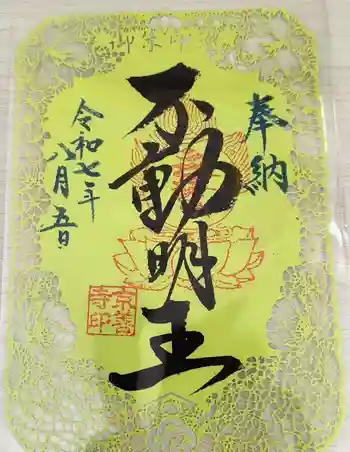 奉納
不動明王
令和七年
八月五日
京善
寺印